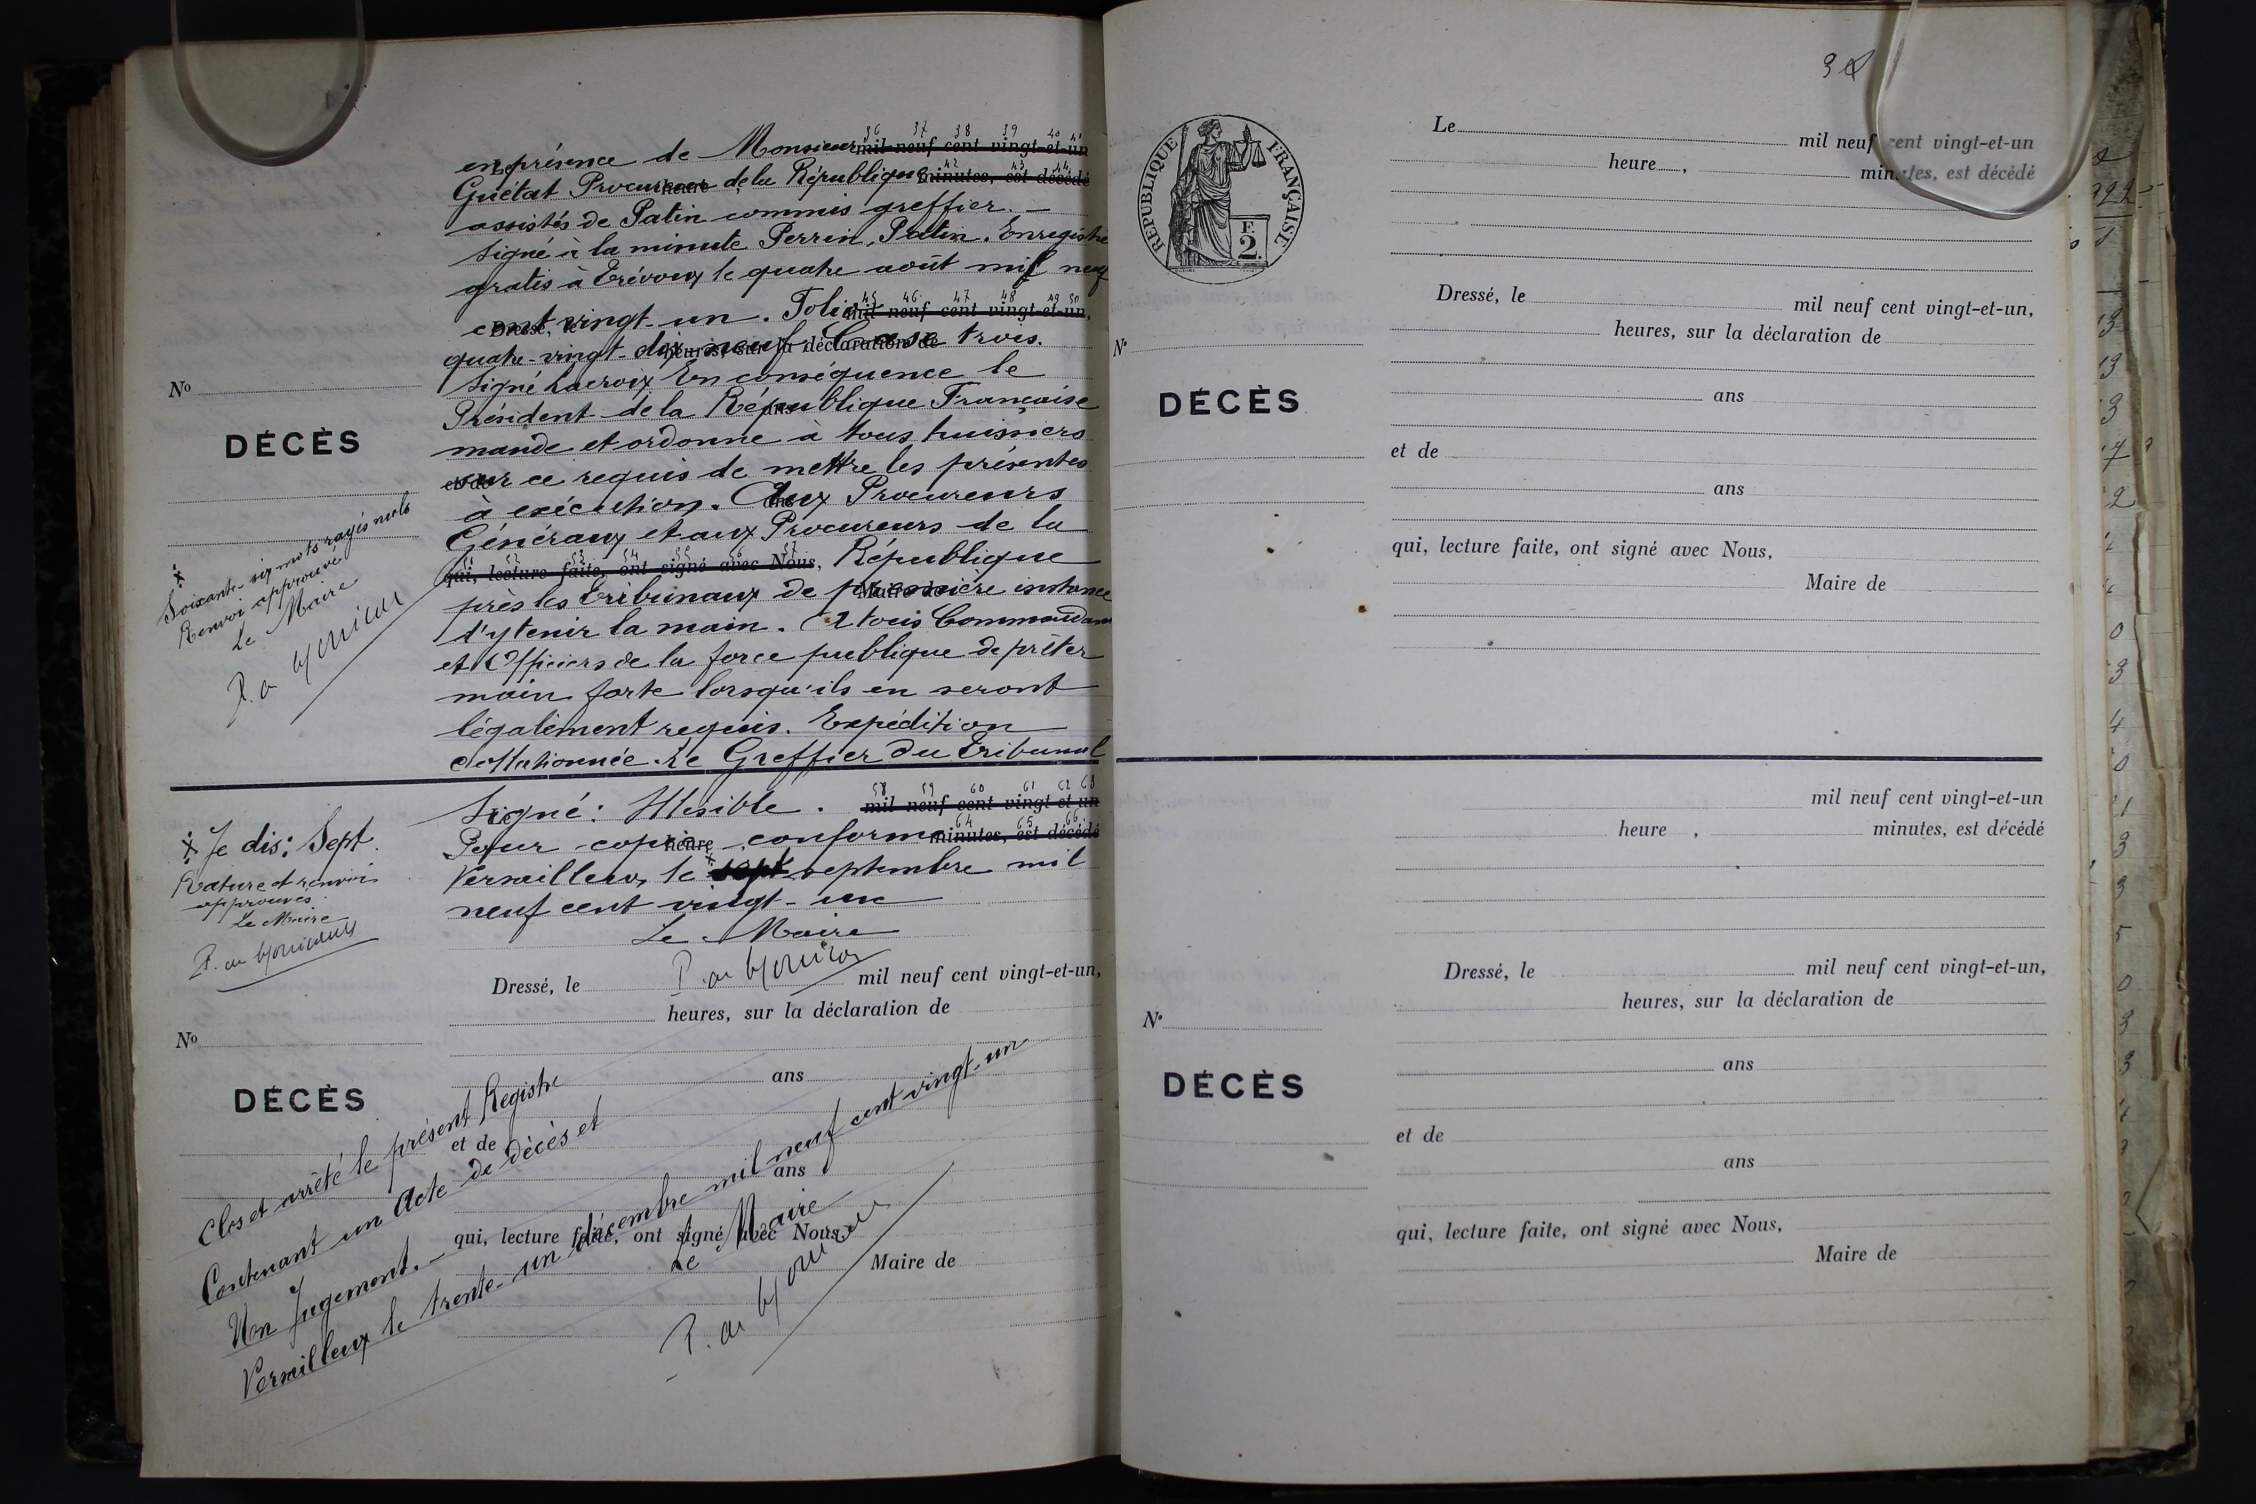 en présence de Monsieur mil neuf cent vingt-et-un
Guétat Procureur de la République minutes, est décédé
assistés de Patin commis greffier. —
Signé à la minute Perrin, Patin. Enregistré
gratis à Trévoux le quatre août mil neuf
cent vingt-un. Folio mil neuf cent vingt-et-un,
quatre-vingt-dix-neuf Case trois.
Signé Lacroix En conséquence le
Président de la République Française
mande et ordonne à tous huissiers
sur ce requis de mettre les présentes
à exécution. Aux Procureurs
Généraux et aux Procureurs de la
qui, lecture faite, ont signé avec Nous, République
près les Tribunaux de première instance
d'y tenir la main. A tous Commandants
et Officiers de la force publique de prêter
main forte lorsqu'ils en seront
légalement requis. Expédition
collationnée. Le Greffier du Tribunal
Signé: Illisible. mil neuf cent vingt et un
Pour copie conforme minutes, est décédé
Versailleux, le sept septembre mil
neuf cent vingt-un
Le Maire
Dressé, le mil neuf cent vingt-et-un,
heures, sur la déclaration de
ans
et de
ans
qui, lecture faite, ont signé avec Nous,
Maire de
No
DÉCÈS
Soixante-six mots rayés nuls
Renvoi approuvé
Le Maire
Je dis: Sept.
Rature et renvoi
approuvés.
Le Maire
No
DÉCÈS
Clos et arrêté le présent Registre
Contenant un Acte de décès et
Un Jugement. —
Versailleux le trente-un décembre mil neuf cent vingt-un
Le Maire
Le mil neuf cent vingt-et-un
heure , minutes, est décédé
RÉPUBLIQUE FRANÇAISE
F.
2.
Dressé, le mil neuf cent vingt-et-un,
heures, sur la déclaration de
N°
DÉCÈS
ans
et de
ans
qui, lecture faite, ont signé avec Nous,
Maire de
mil neuf cent vingt-et-un
heure , minutes, est décédé
Dressé, le mil neuf cent vingt-et-un,
heures, sur la déclaration de
N°
DÉCÈS
ans
et de
ans
qui, lecture faite, ont signé avec Nous,
Maire de